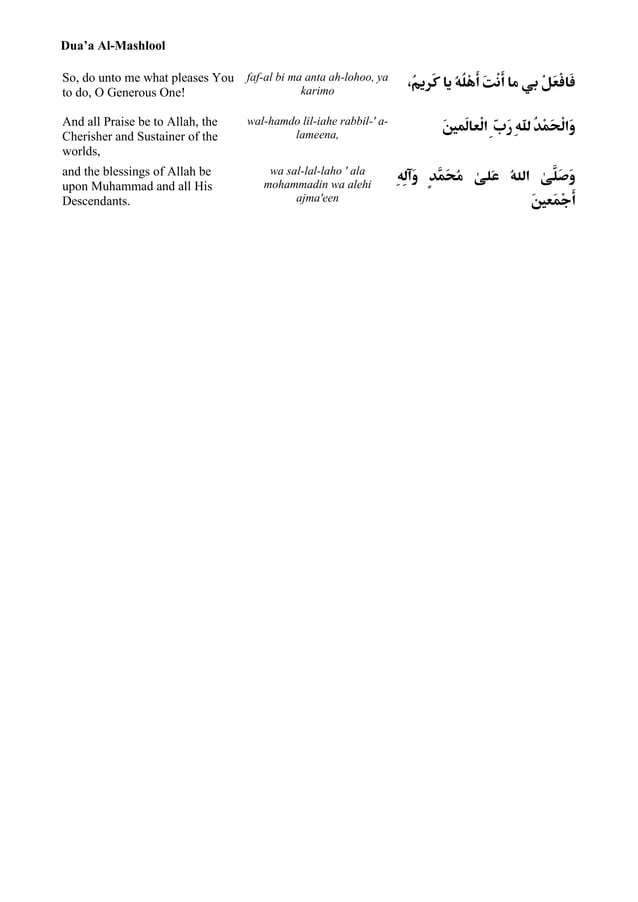 Dua’a Al-Mashlool
So, do unto me what pleases You
to do, O Generous One!
faf-al bi ma anta ah-lohoo, ya
karimo
فَافْعَلْ بي ما أَنْتَ أَهْلُهُ يا كَريمُ،
And all Praise be to Allah, the
Cherisher and Sustainer of the
worlds,
wal-hamdo lil-iahe rabbil-' a-
lameena,
وَالْحَمْدُ للّهِ رَبِّ الْعالَمينَ
and the blessings of Allah be
upon Muhammad and all His
Descendants.
wa sal-lal-laho ' ala
mohammadin wa alehi
ajma'een
وَصَلَّىٰ اللهُ عَلىٰ مُحَمَّدٍ وَآلِهِ
أَجْمَعينَ